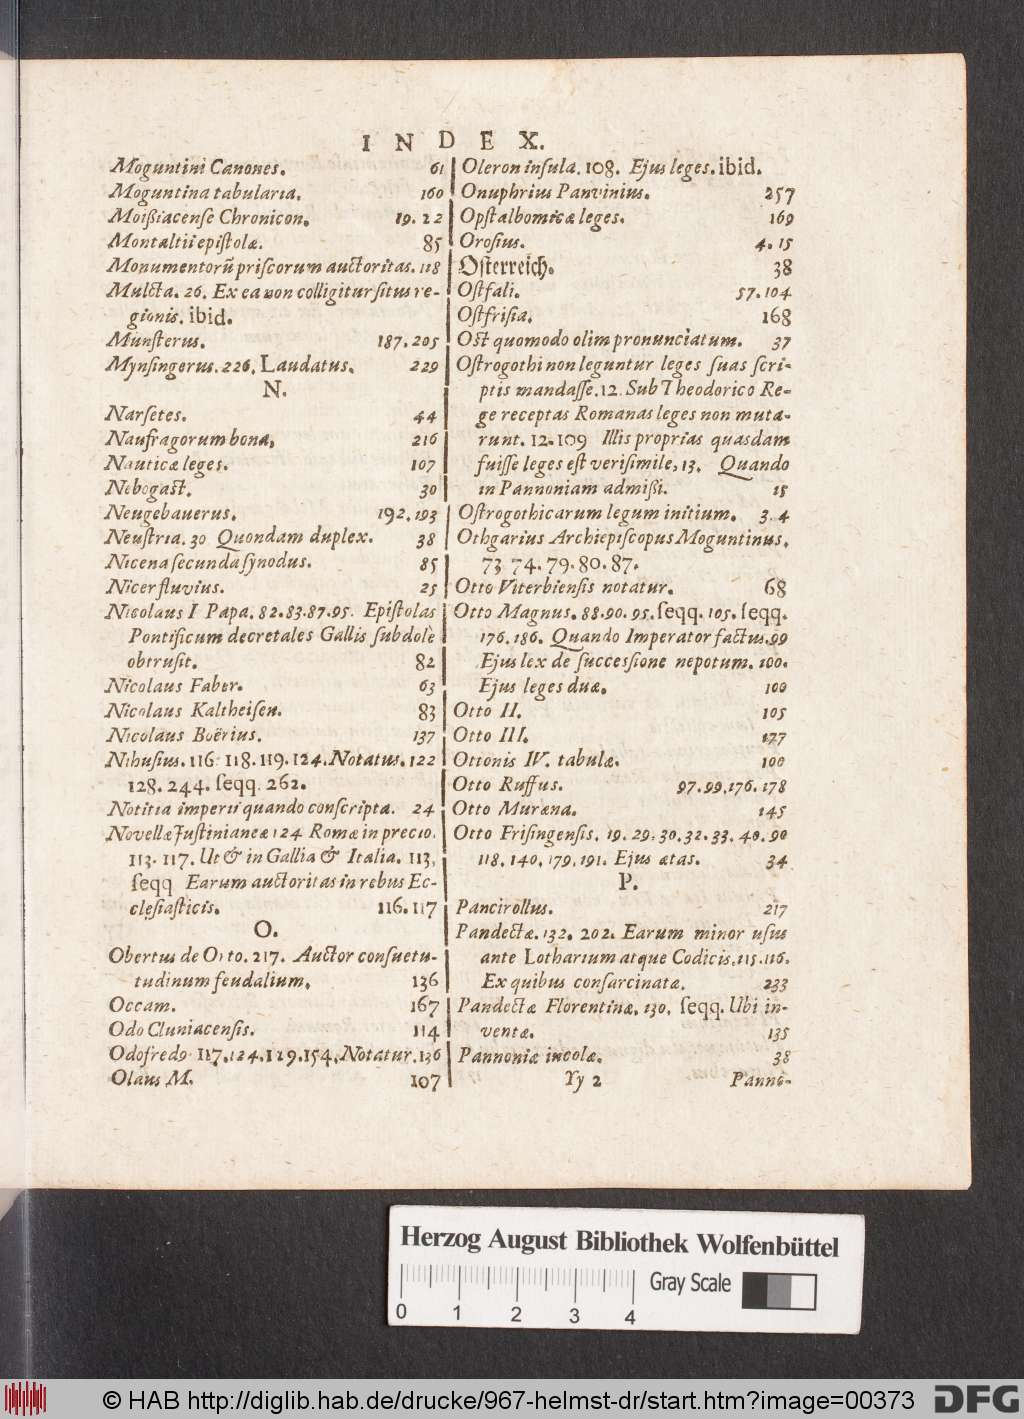 INDEX.
Moguntini Canones. 61
Moguntina tabularia. 160
Moißiacense Chronicon. 19. 22
Montaltii epistolæ. 85
Monumentorũ priscorum auctoritas. 118
Mulcta. 26. Ex ea non colligitur situs re-
gionis. ibid.
Munsterus. 187. 205
Mynsingerus. 226. Laudatus. 229
N.
Narsetes. 44
Naufragorum bona. 216
Nauticæ leges. 107
Nebogast. 30
Neugebauerus. 192. 193
Neustria. 30 Quondam duplex. 38
Nicena secunda synodus. 85
Nicer fluvius. 25
Nicolaus I Papa. 82. 83. 87. 95. Epistolas
Pontificum decretales Gallis subdole
obtrusit. 82
Nicolaus Faber. 63
Nicolaus Kaltheisen. 83
Nicolaus Boërius. 137
Nihusius. 116. 118. 119. 124. Notatus. 122
128. 244. seqq. 262.
Notitia imperii quando conscripta. 24
Novellæ Justinianeæ 124 Romæ in precio.
113. 117. Ut & in Gallia & Italia. 113.
seqq Earum auctoritas in rebus Ec-
clesiasticis. 116. 117
O.
Obertus de Orto. 217. Auctor consuetu-
tudinum feudalium. 136
Occam. 167
Odo Cluniacensis. 114
Odofredo 117. 124. 129. 154. Notatur. 136
Olaus M. 107
Oleron insula. 108. Ejus leges. ibid.
Onuphrius Panvinius. 257
Opstalbomicæ leges. 169
Orosius. 4. 15
Osterreich. 38
Ostfali. 57. 104
Ostfrisia. 168
Ost quomodo olim pronunciatum. 37
Ostrogothi non leguntur leges suas scri-
ptis mandasse. 12. Sub Theodorico Re-
ge receptas Romanas leges non muta-
runt. 12. 109 Illis proprias quasdam
fuisse leges est verisimile, 13. Quando
in Pannoniam admißi. 15
Ostrogothicarum legum initium. 3. 4
Othgarius Archiepiscopus Moguntinus.
73 74. 79. 80. 87.
Otto Viterbiensis notatur. 68
Otto Magnus. 88. 90. 95. seqq. 105. seqq.
176. 186. Quando Imperator factus. 99
Ejus lex de successione nepotum. 100.
Ejus leges duæ. 100
Otto II. 105
Otto III. 177
Ottonis IV. tabulæ. 100
Otto Ruffus. 97. 99. 176. 178
Otto Muræna. 145
Otto Frisingensis. 19. 29. 30. 32. 33. 40. 90
118. 140. 179. 191. Ejus ætas. 34
P.
Pancirollus. 217
Pandectæ. 132. 202. Earum minor usus
ante Lotharium atque Codicis. 115. 116.
Ex quibus consarcinatæ. 233
Pandectæ Florentinæ. 130. seqq. Ubi in-
ventæ. 135
Pannoniæ incolæ. 38
Yy 2 Panno-
Herzog August Bibliothek Wolfenbüttel
Gray Scale
0 1 2 3 4
© HAB http://diglib.hab.de/drucke/967-helmst-dr/start.htm?image=00373
DFG